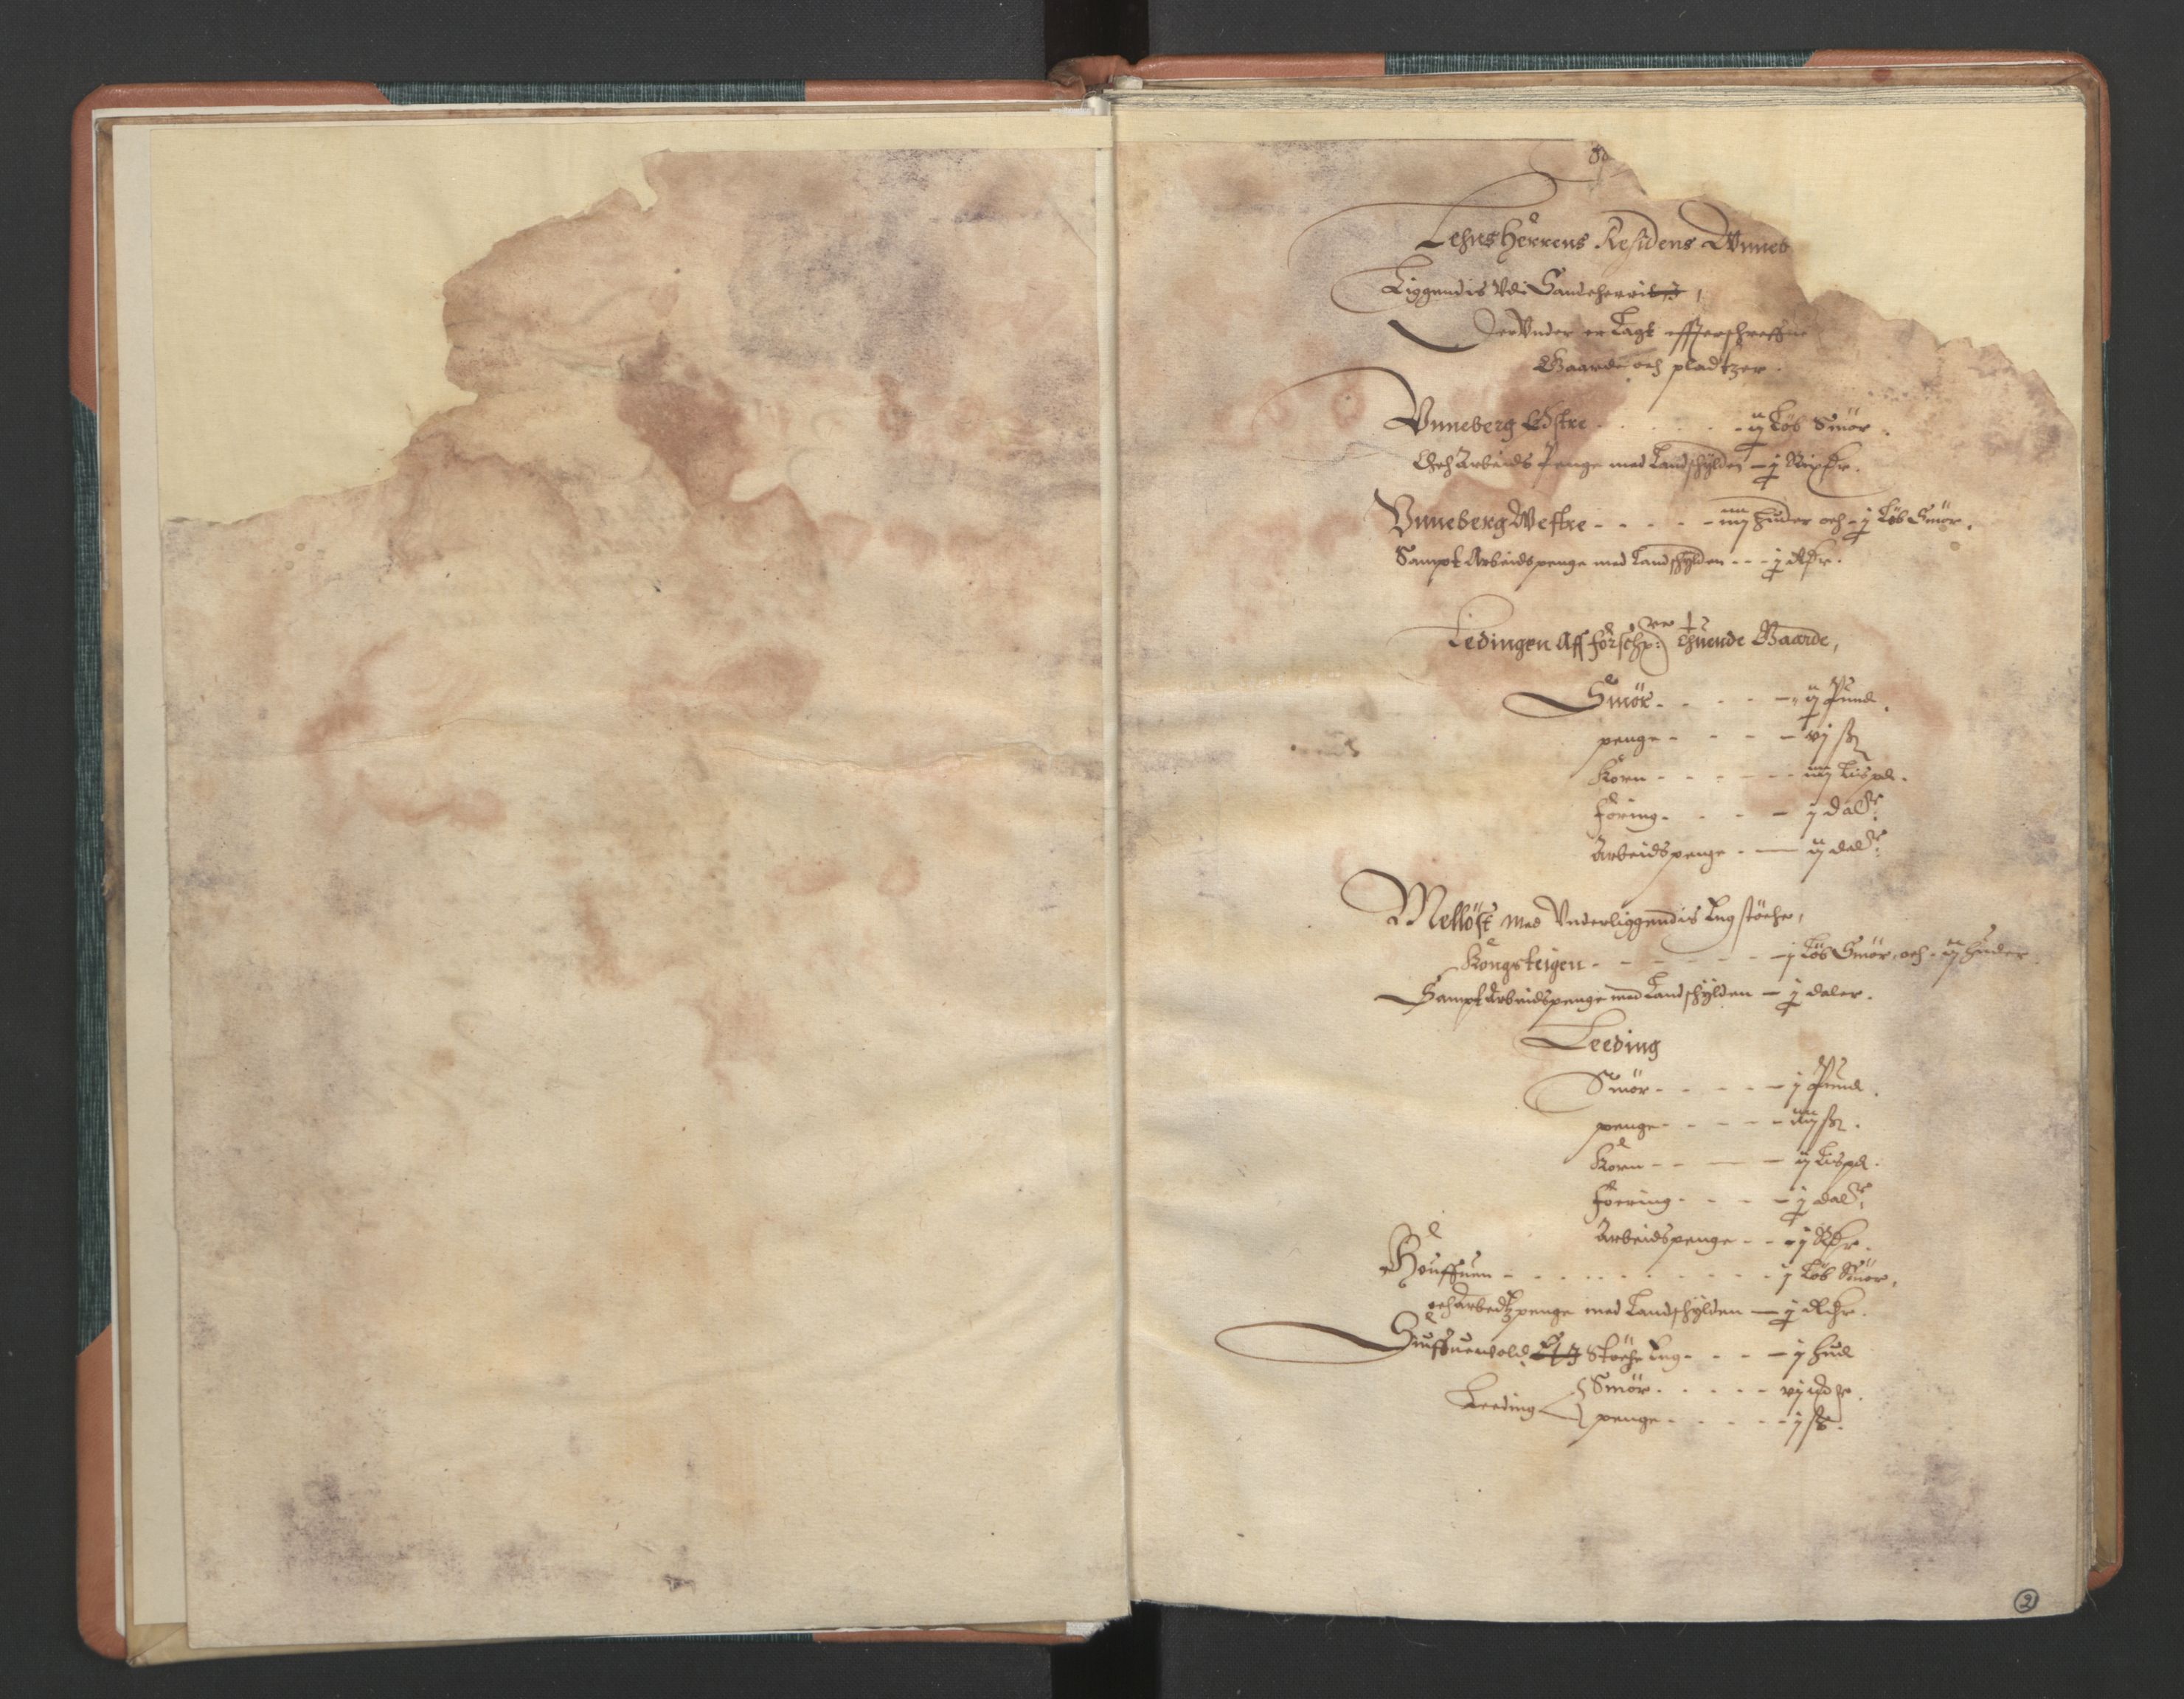 Lehns Herrens Residens Wnneb
Liggendis Vdi Sandeherrit
Der Vnder er Lagt effterschreffne
Gaarde och pladtzer.
Vnneberg Østre - - - ij Løb Smør.
Och Arbeids Penge med Landschylden - j Rixdr.
Vnneberg Westre - - - - - iiij huder och - j Løb Smør.
Sampt Arbeidspenge med Landschylden - - - j Rdr.
Ledingen Aff forschr: ne tuende Gaarde,
Smør - - - - ij Pund.
penge - - - - vj ß
Korn - - - - - iiij Lispd.
Føring - - - - j dalr.
Arbeidspenge - - ij dalr.
Melløst Med Vnderliggendis Eng støche,
Kongsteigen - - - - - - j Løb Smør, och - iij huder
Sampt Arbeidspenge med Landschylden - j daler.
Leeding
Smør - - - - - j Pund.
penge - - - - - iiij ß.
Korn - - - - ij Lispd.
Foering - - - - j dalr.
Arbeidspenge - - - j Rdr.
Houffuen - - - - - - - - - j Løb Smør,
och Arbedtzpenge med Landschylden - j Rdr.
Støche Eng - - - - j hud
Leeding Smør - - - - - vj
penge - - - - - j ß.
2